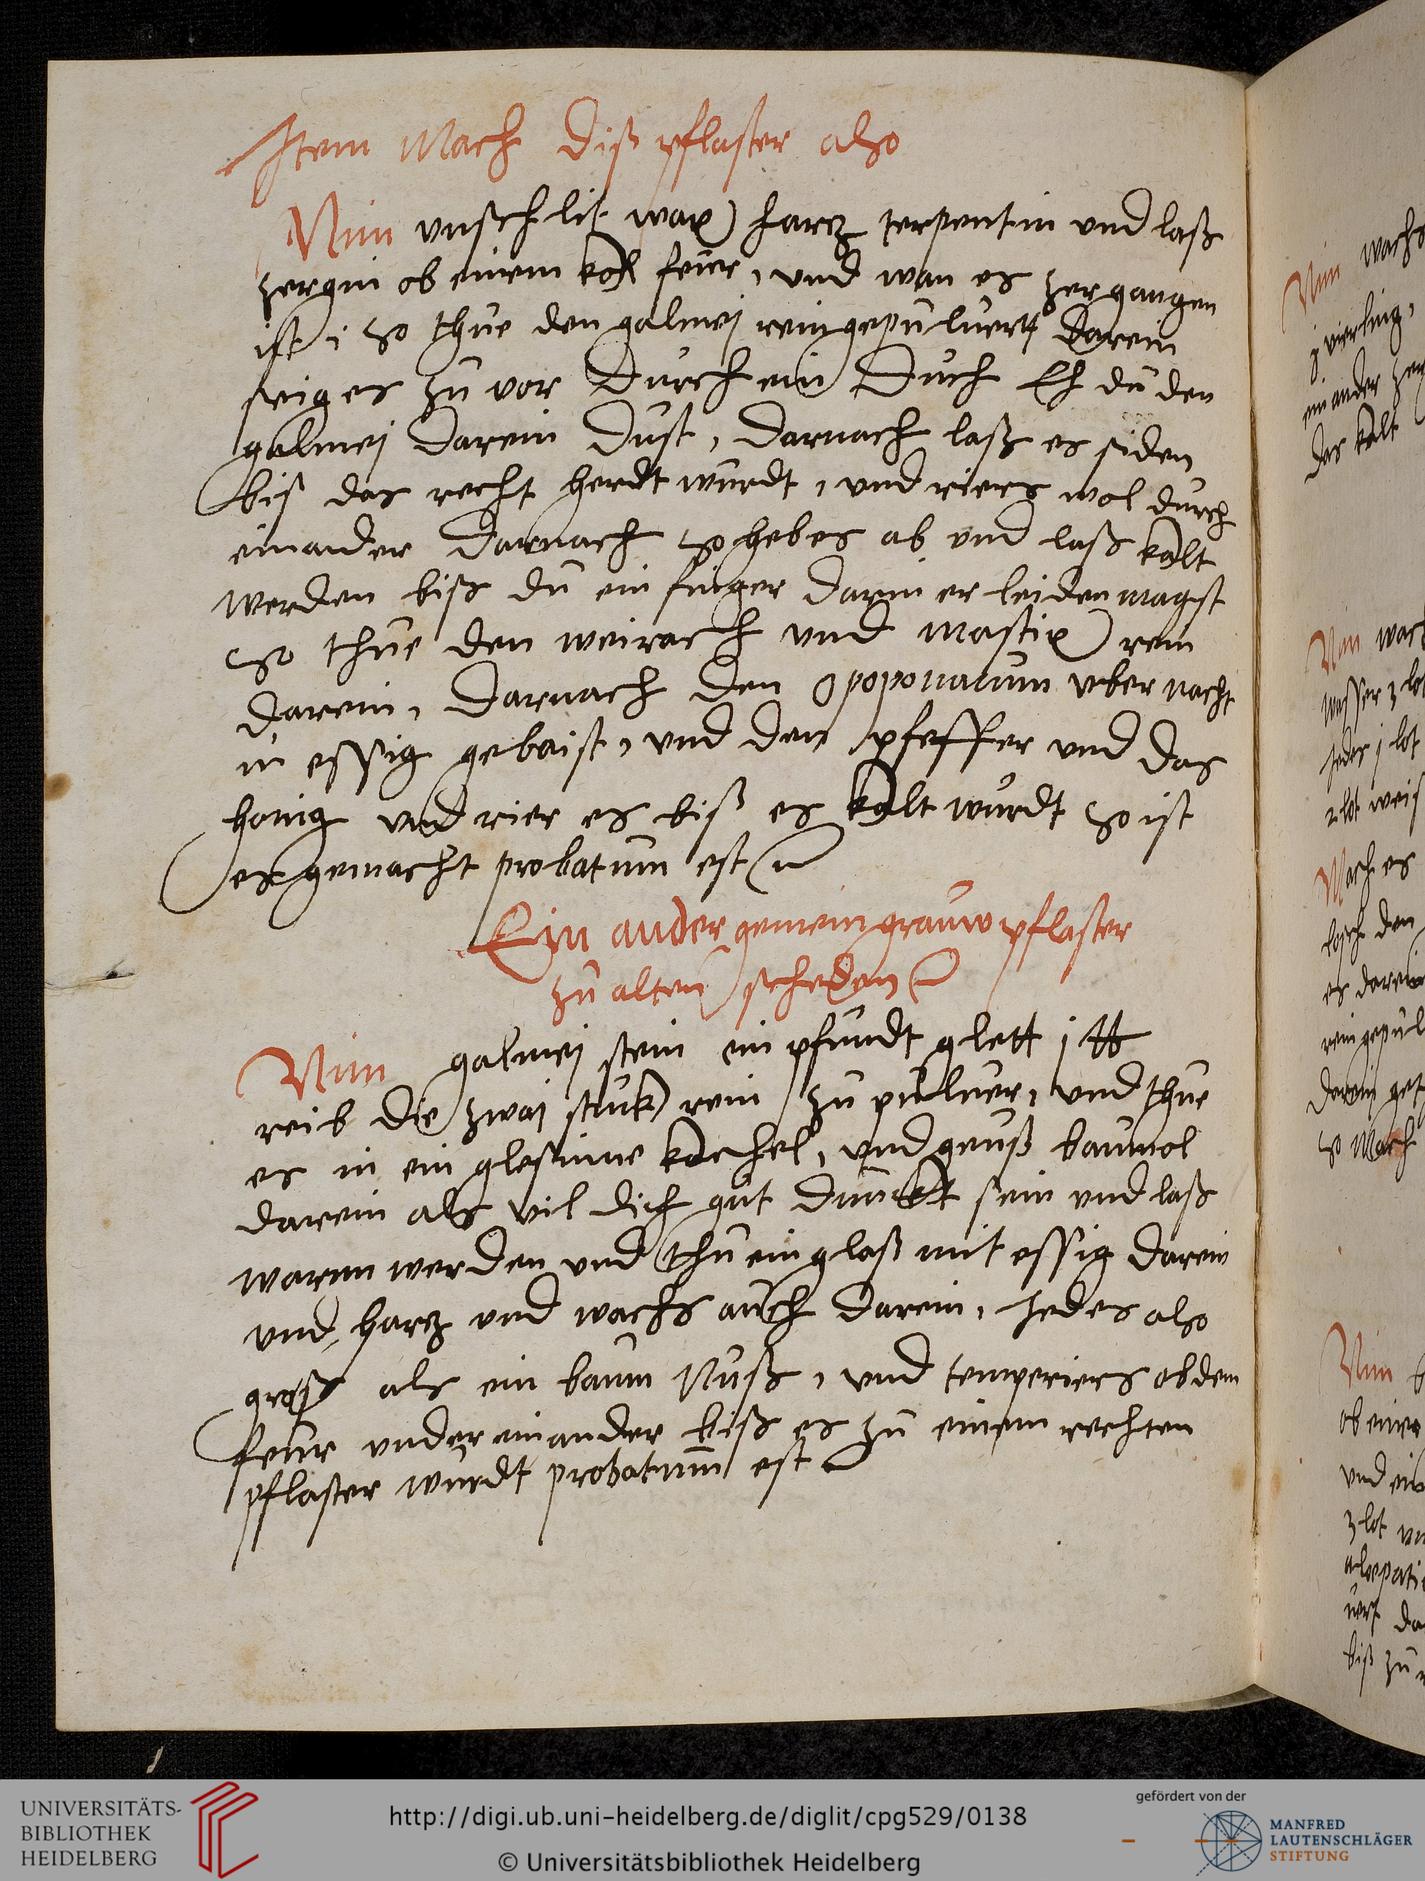 Item Mach diß pflaster also
Nim vnschlit wax harcz terpentin vnd laß
zergin ob einem kol feür, vnd wan es zergangen
ist, so thue den galmej rein gepuluert darein
seiges zu vor durch ein duch Eh du den
galmej darein dust, darnach laß es siden
biß das recht herdt wurdt, vnd riers wol durch
einander darnach so hebes ab vnd laß kalt
werden biß du ein finger darin erleiden magst
so thue den weirach vnd mastix rein
darein, darnach den opoponacum vber nacht
in essig gebaist, vnd den pfeffer vnd das
honig vnd rier es biß es kalt wurdt so ist
es gemacht probatum est
Ein ander gemein grauw pflaster
zu alten scheden
Nim galmej stein ein pfundt glett j ℔
reib die zwaj stuk rein zu puluer, vnd thue
es in ein glesinne kachel, vnd geuß baumol
darein als vil dich gut dunckt sein vnd laß
warm werden vnd thu ein glaß mit essig darein
vnd harcz vnd wachs auch darein, jedes also
groß als ein baum Nuß, vnd temperiers ob dem
feur vnder einander biß es zu einem rechten
pflaster wurdt probatum est
Nim wachs
j vierling,
ein ander
das kalt
Nim
wasser 3 lot
jedes j lot
2 lot weis
Mach es
den
es darein
rein gepul
darein
so Mach
Nim
ob einer
vnd ein
3 lot
biß zu
UNIVERSITÄTS-
BIBLIOTHEK
HEIDELBERG
http://digi.ub.uni-heidelberg.de/diglit/cpg529/0138
© Universitätsbibliothek Heidelberg
gefördert von der
MANFRED
LAUTENSCHLÄGER
STIFTUNG